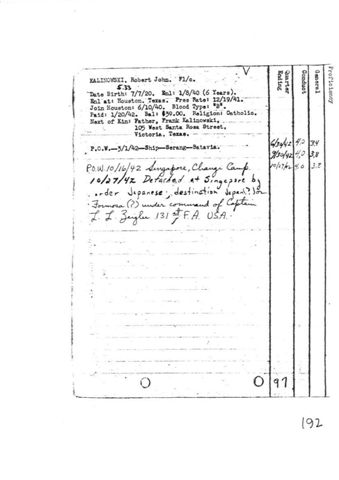 KALINOWSKI, Robert John. F1/c.
5.33
Date Birth: 7/7/20. Enl: 1/8/40 (6 Years).
Enl at: Houston, Texas. Pres Rate: 12/19/41.
Join Houston: 6/10/40. Blood Type: "B".
Paid: 1/20/42. Bal: $39.00. Religion: Catholic.
Next of Kin: Father, Frank Kalinowski,
105 West Santa Rosa Street,
Victoria, Texas.
P.O.W.--3/1/42--Ship--Serang--Batavia.
P.O.W. 10/16/42 Singapore, Changi Camp.
10/27/42 Detached at Singapore by
order Japanese, destination Japan(?) or
Formosa (?) under command of Captain
L. L. Zeigler 131st F.A. USA.
Quarter Ending
Conduct
General
Proficiency
6/30/42 4.0 3.4
9/30/42 4.0 3.8
10/27/42 4.0
97
192